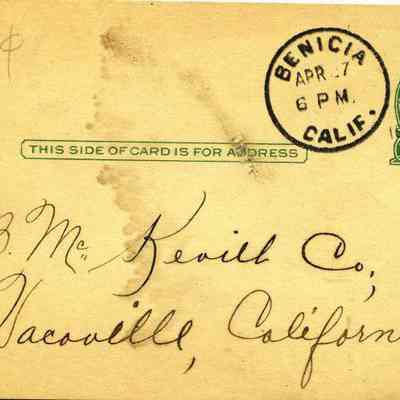 BENICIA
APR 27
6 P.M.
CALIF.
THIS SIDE OF CARD IS FOR ADDRESS
B. Mc Kevitt Co,
Vacaville, Californ